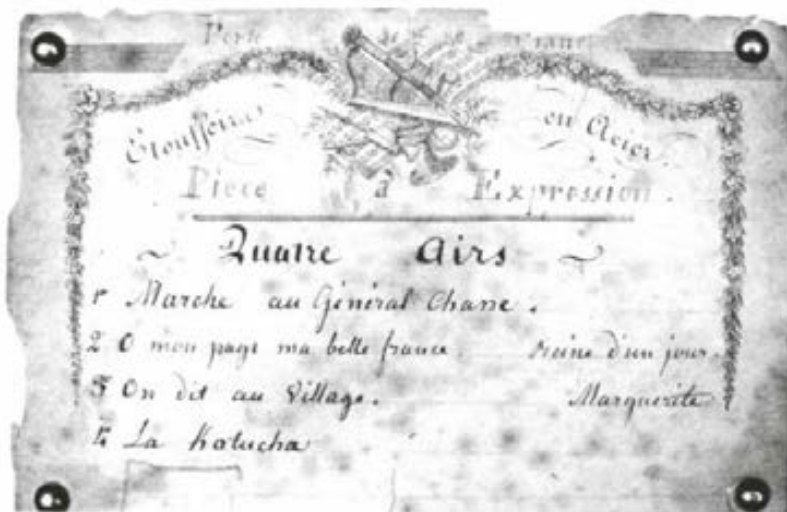 de
Etouffoirs en Acier.
Piece à Expression.
~ Quatre Airs ~
1 Marche au Général Chasse.
2 O mon pays ma belle france. reine d'un jour.
3 On dit au Village. Marguerite
4 La Katucha